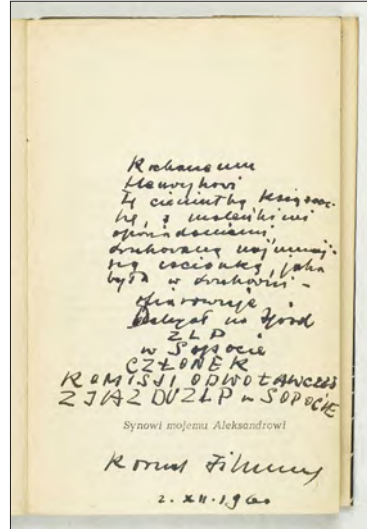 Kochanemu
Henrykowi
tę cieniutką książecz-
kę, z maleńkimi
opowiadaniami,
drukowaną najmniej-
szą czcionką, jaka
była w drukarni –
ofiarowuje
Delegat na Zjazd
ZLP
w Sopocie
CZŁONEK
KOMISJI ODWOŁAWCZEJ
ZJAZDU ZLP w SOPOCIE
Synowi mojemu Aleksandrowi
Kornel Filipowicz
2. XII. 1960